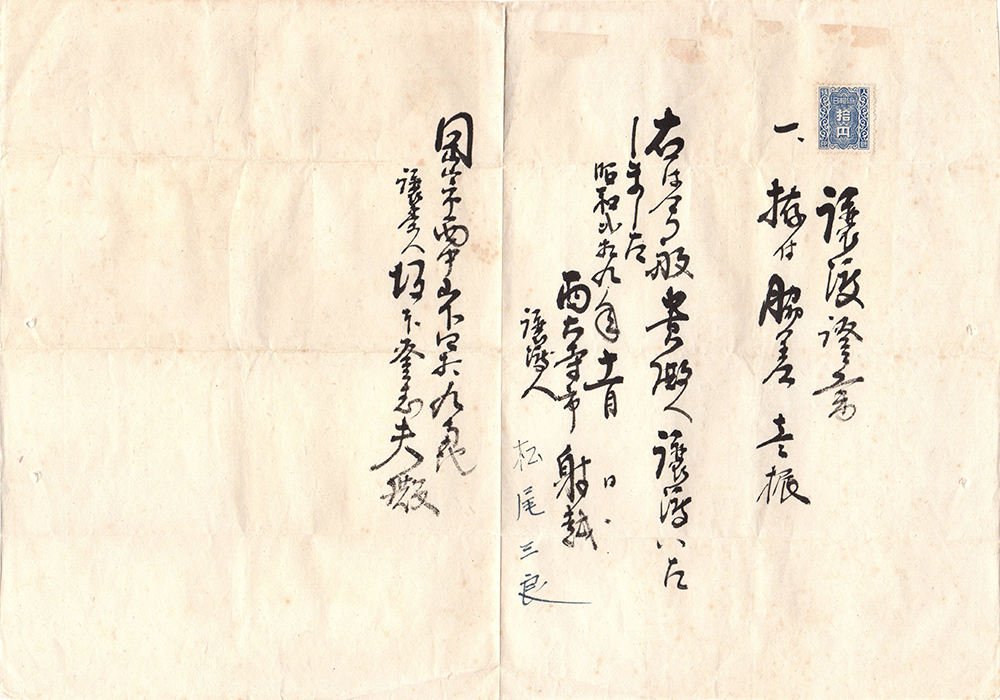 譲渡證書
一、拵付脇差 壱振
右は今般貴殿へ譲渡いた
しました
昭和弐拾九年十一月 日
西大寺市射越
譲渡人 松尾三良
岡山市西中山下四拾九番地
譲受人 坂下
夫殿
拾円